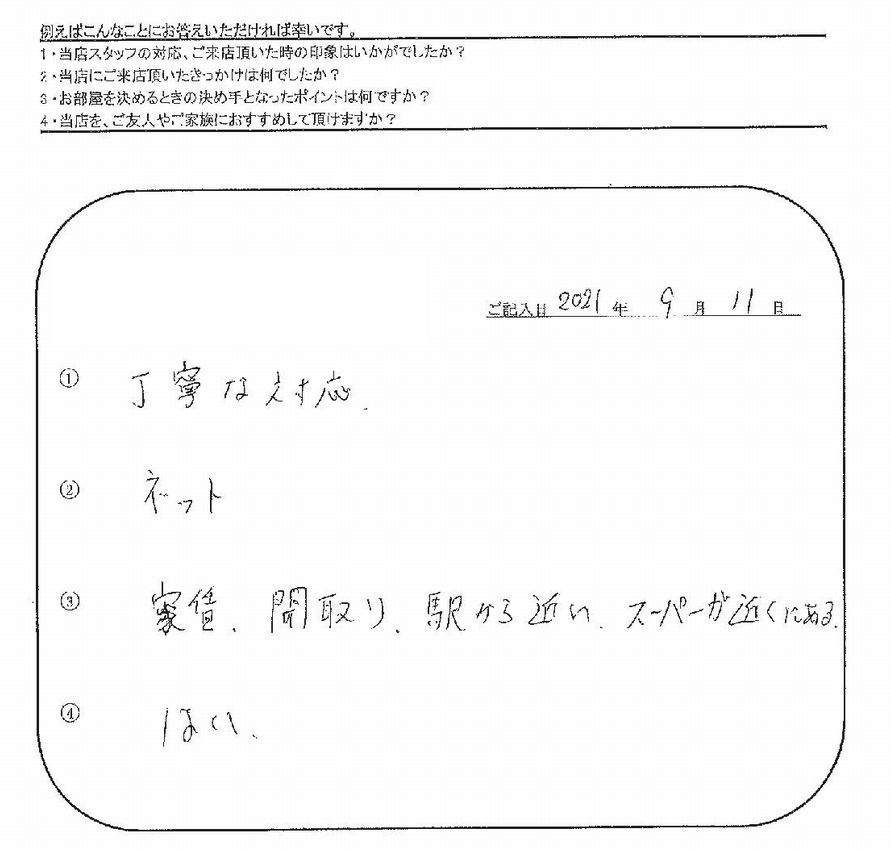 例えばこんなことにお答えいただければ幸いです。
1・当店スタッフの対応、ご来店頂いた時の印象はいかがでしたか？
2・当店にご来店頂いたきっかけは何でしたか？
3・お部屋を決めるときの決め手となったポイントは何ですか？
4・当店を、ご友人やご家族におすすめして頂けますか？
ご記入日 2021 年 9 月 11 日
① 丁寧な対応.
② ネット
③ 家賃、間取り、駅から近い、スーパーが近くにある.
④ はい、